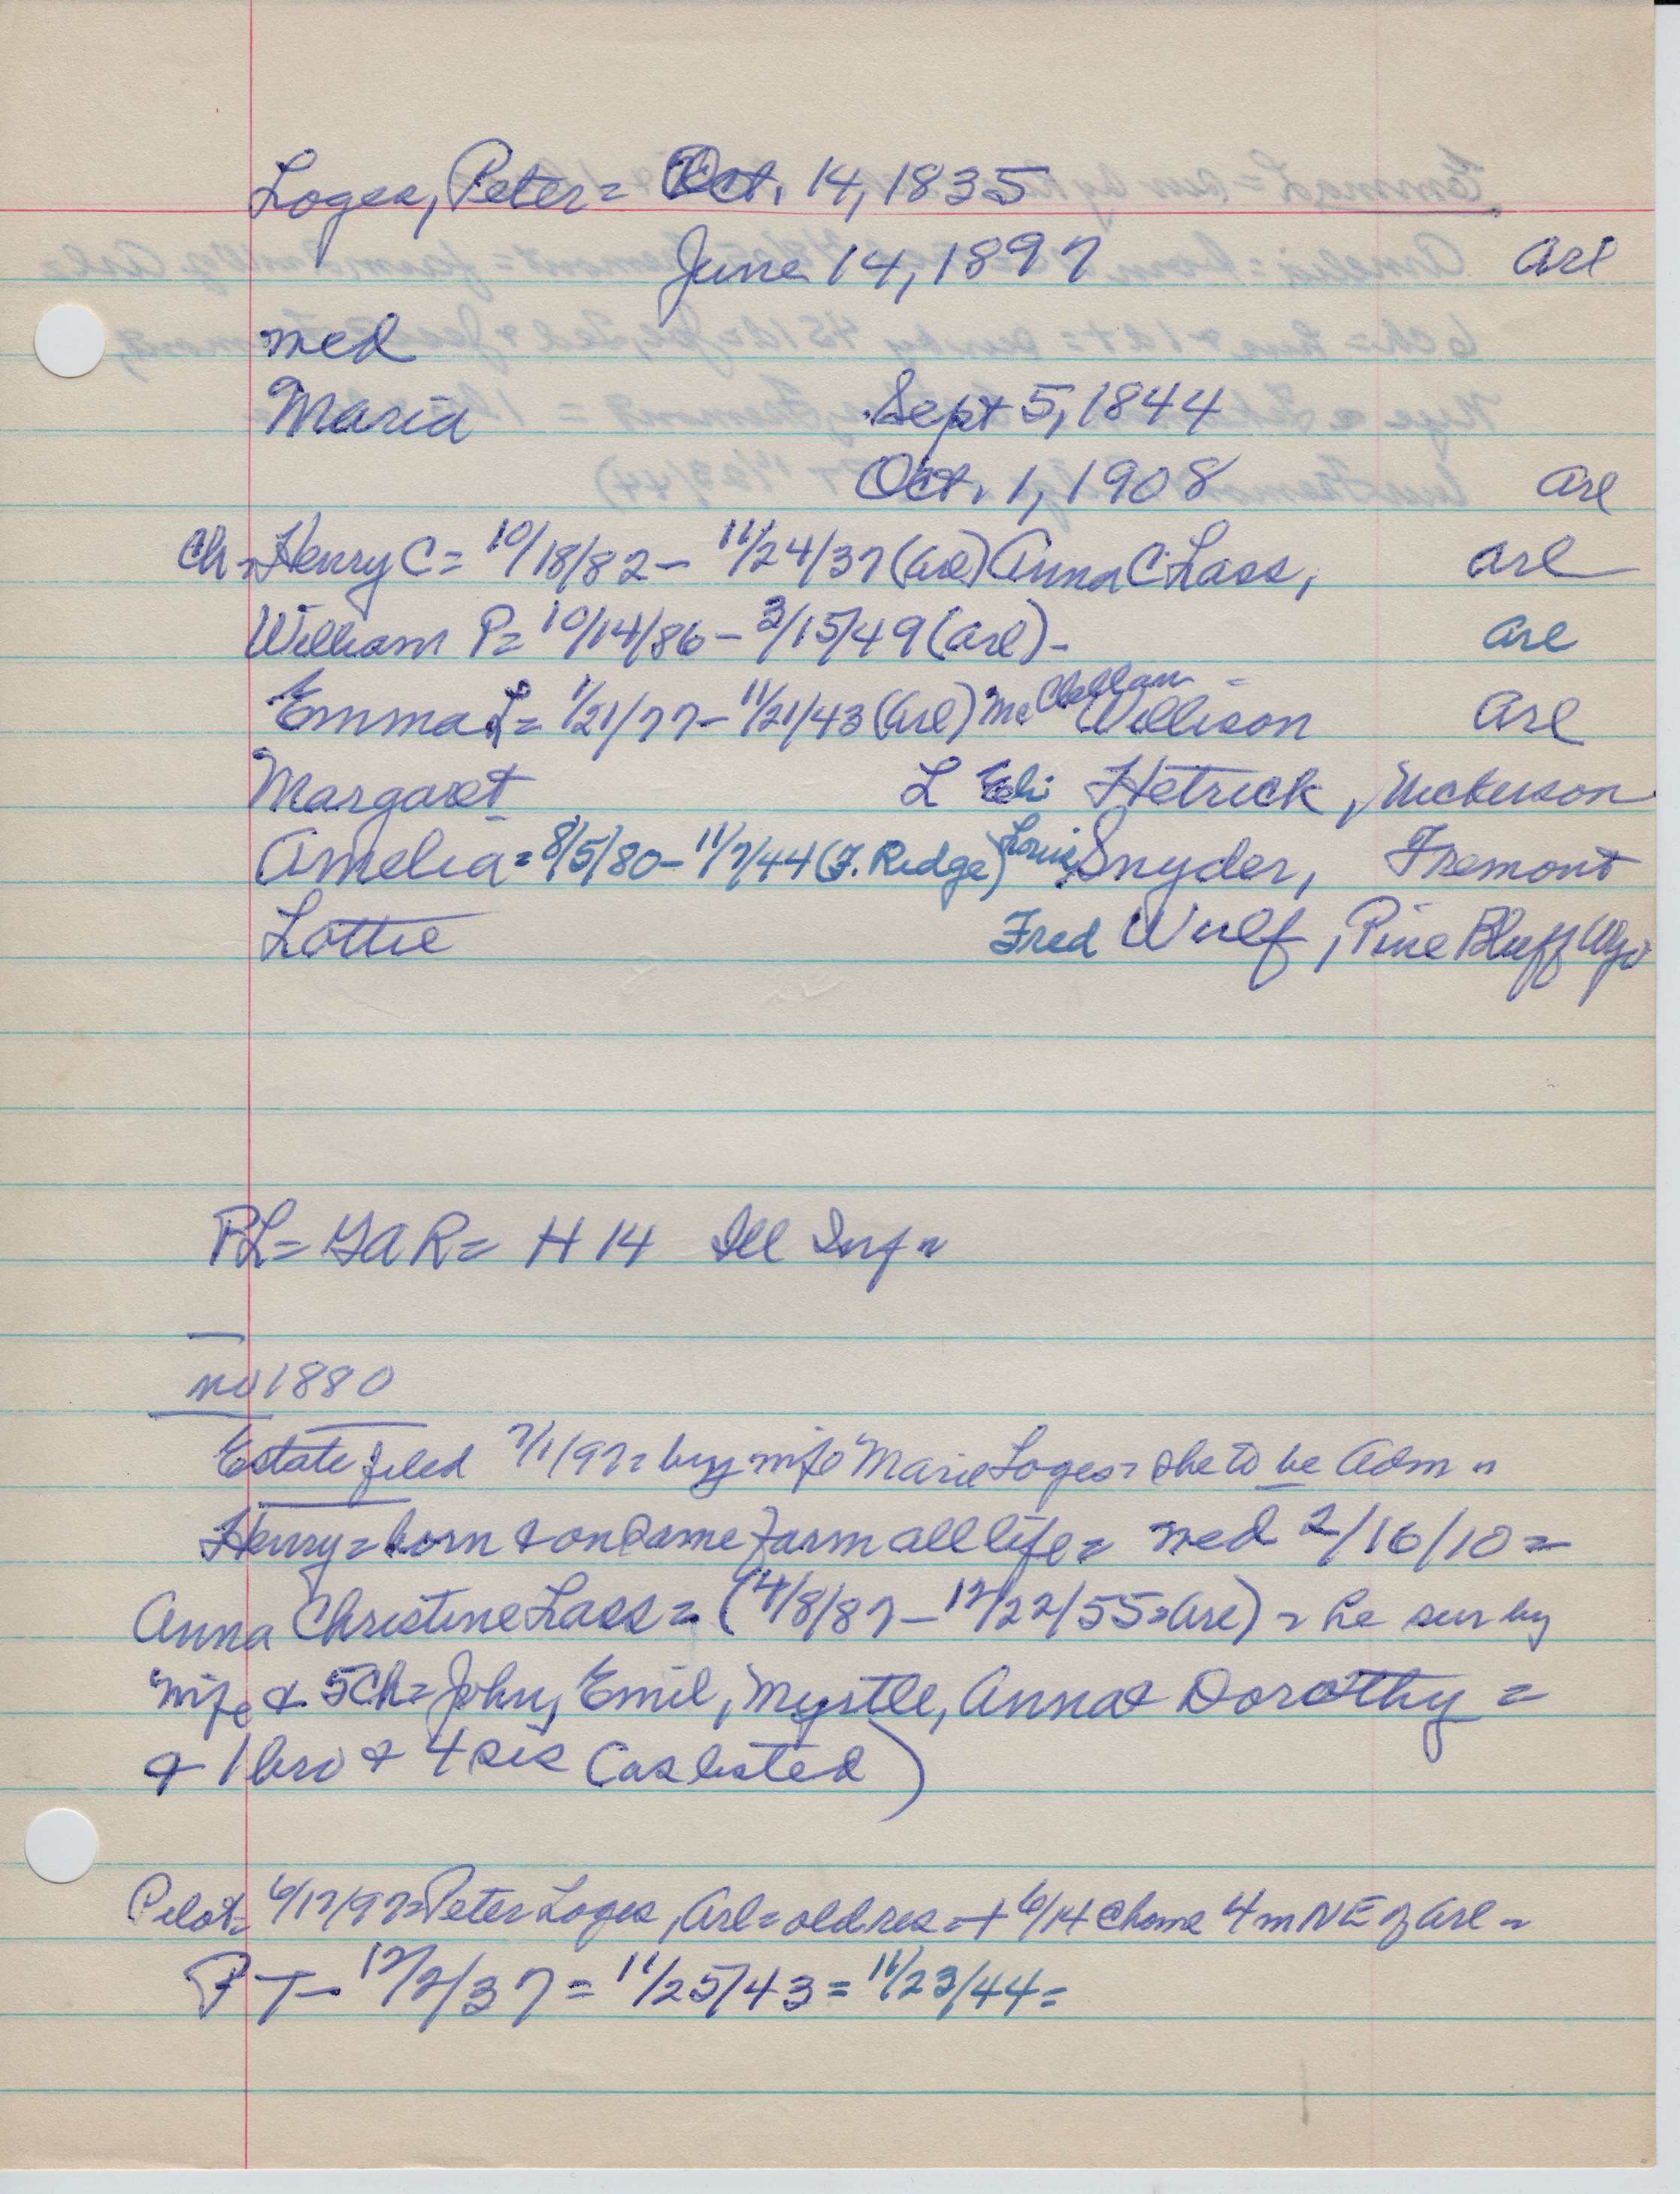 Loges, Peter = Oct. 14, 1835
June 14, 1897 Arl
med
Maria Sept 5, 1844
Oct. 1, 1908 Arl
Ch = Henry C = 10/18/82 - 11/24/37 (Arl) Anna C Lass, Arl
William P = 10/14/86 - 3/15/49 (Arl) - Arl
Emma L = 1/21/77 - 11/21/43 (Arl) McClellan Willison Arl
Margaret L Eli Hetrick, Nickerson
Amelia = 8/5/80 - 11/7/44 (F. Ridge) Louis Snyder, Fremont
Lottie Fred Wulf, Pine Bluff Wyo
PL = GAR = H 14 Ill Inf =
no 1880
Estate filed 7/1/97 = by wife Marie Loges = she to be Adm =
Henry = born & on same farm all life = med 2/16/10 =
Anna Christine Lass = (4/8/87 - 12/22/55 = Arl) = he sur by
wife & 5 Ch = John, Emil, Myrtle, Anna & Dorothy =
& 1 bro & 4 sis (as listed)
Pilot = 6/17/97 = Peter Loges, Arl = old res = + 6/14 @ home 4 m NE of Arl =
PT - 12/2/37 = 11/25/43 = 11/23/44 =